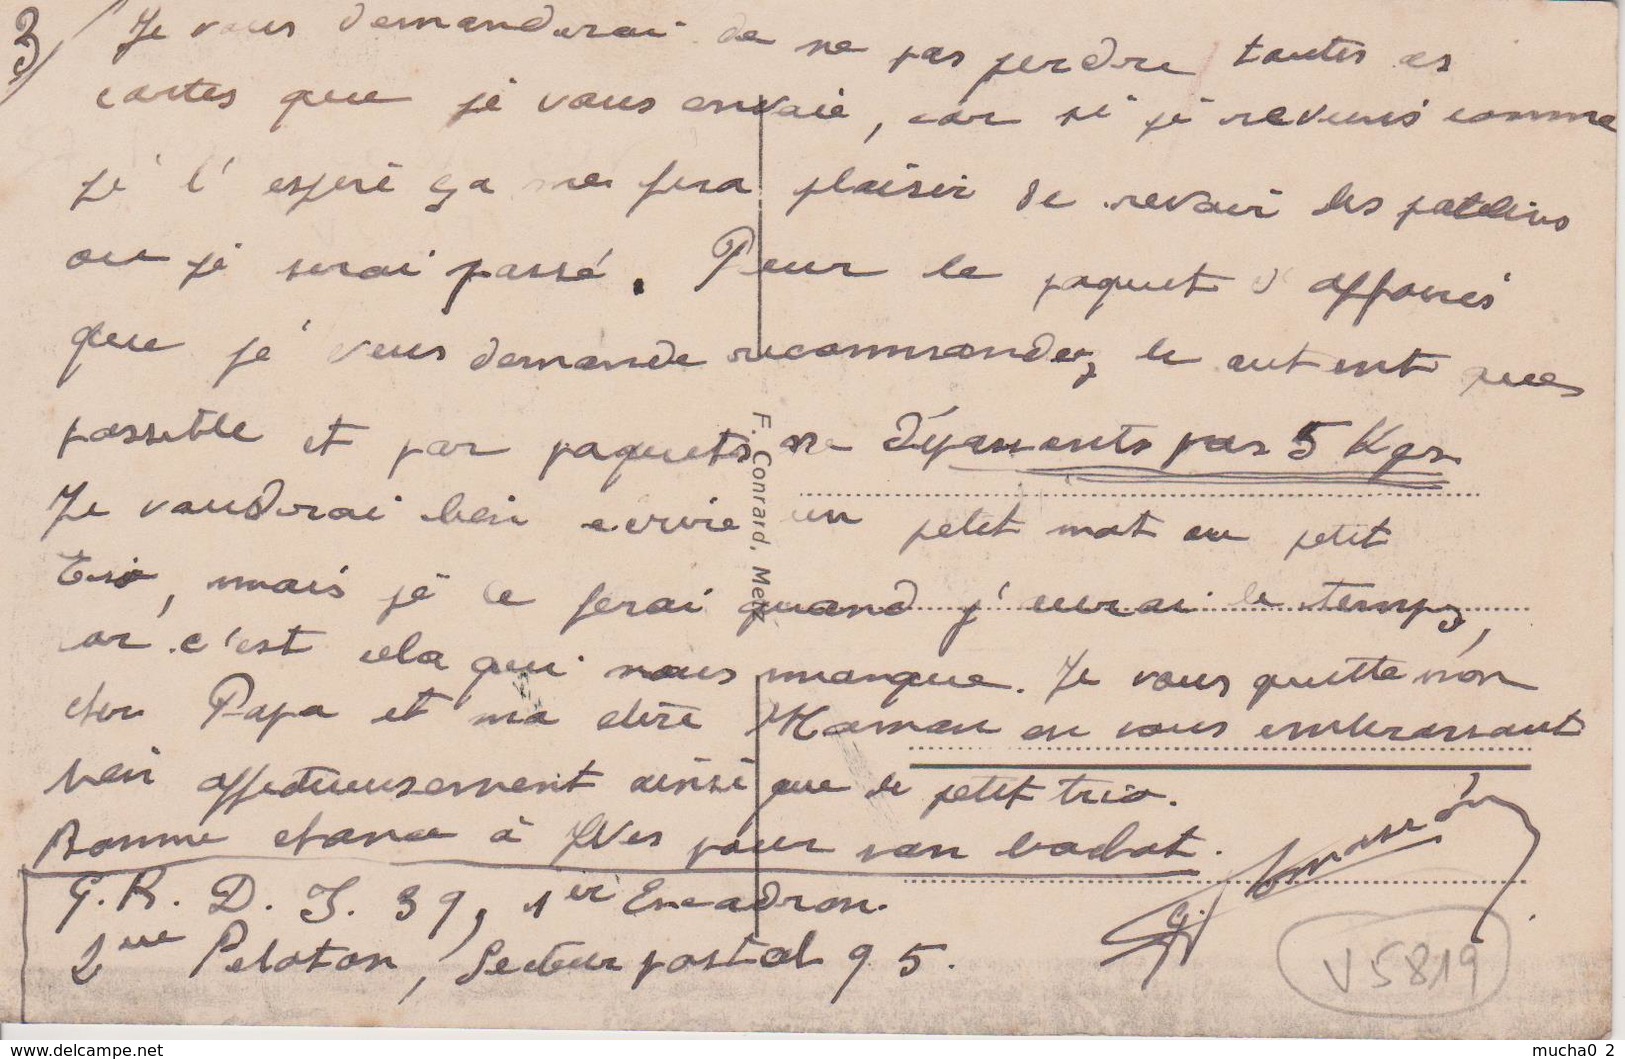 3/ Je vous demanderai de ne pas perdre toutes ces
cartes que je vous envoie, car si je reviens comme
je l'espère ça me fera plaisir de revoir les patelins
ou je serai passé. Pour le paquet d'affaires
que je vous demande recommandez le autent que
possible et par paquets ne dépassants pas 5 Kgs.
Je voudrai bien ecrire un petit mot au petit
Trio, mais je le ferai quand j'aurai le temps,
car c'est cela qui nous manque. Je vous quitte mon
cher Papa et ma chère Maman en vous embrassant
bien affectueusement ainsi que le petit trio.
Bonne chance à Yves pour son bachot.
G. R. D. I. 39, 1er Escadron.
2eme Peloton, Secteur postal 95.
F. Conrard, Metz
V5819
www.delcampe.net
mucha0_2